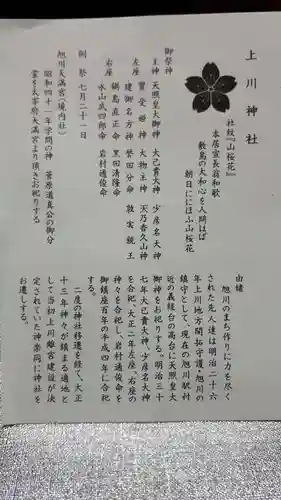 上川神社
社紋『山桜花』
本居宣長翁和歌
敷島の大和心を人問はば
朝日ににほふ山桜花
御祭神
主神 天照皇大御神 大己貴大神 少彦名大神
豊受姫神 大物主神 天乃香久山神
左座 建御名方神 誉田分命 敦実親王
右座 鍋島直正命 黒田清隆命
永山武四郎命 岩村通俊命
例祭 七月二十一日
旭川天満宮(境内社)
昭和四十一年学問の神 菅原道真公の御分
霊を太宰府天満宮より頂きお祀りする
由緒
旭川のまち作りに力を尽く
された先人達は明治二十六
年上川地方開拓守護・旭川の
鎮守として、現在の旭川駅付
近の義経台の高台に天照皇大
御神をお祀りする。明治三十
七年大己貴大神、少彦名大神
を合祀、大正二年左座、右座の
神々を合祀し、岩村通俊命を
御鎮座百年の平成四年に合祀
する。
二度の神社移遷を経て、大正
十三年神々が鎮まる適地と
して当初上川離宮建設が決
定されていた神楽岡に神社を
お遷しする。